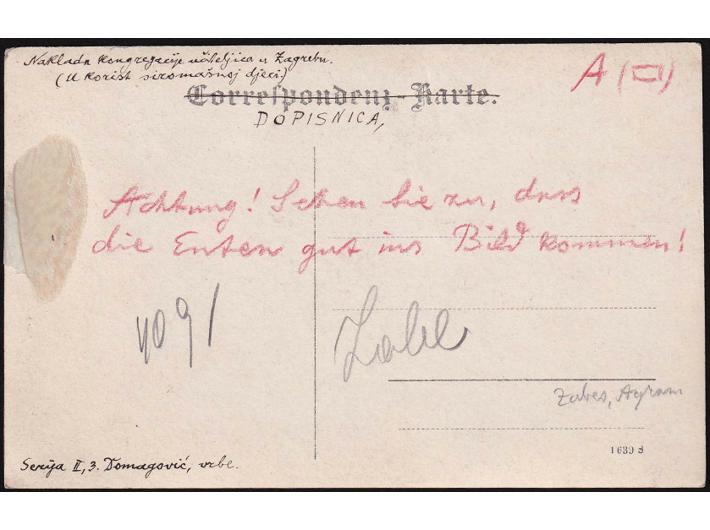 Naklada kongregacije učiteljica u Zagrebu.
(U korist siromašnoj djeci)
A (▭)
Correspondenz-Karte.
DOPISNICA,
Achtung! Sehen Sie zu, dass
die Enten gut ins Bild kommen!
4091
Agram
Serija II, 3. Domagović, vrbe.
1639 S